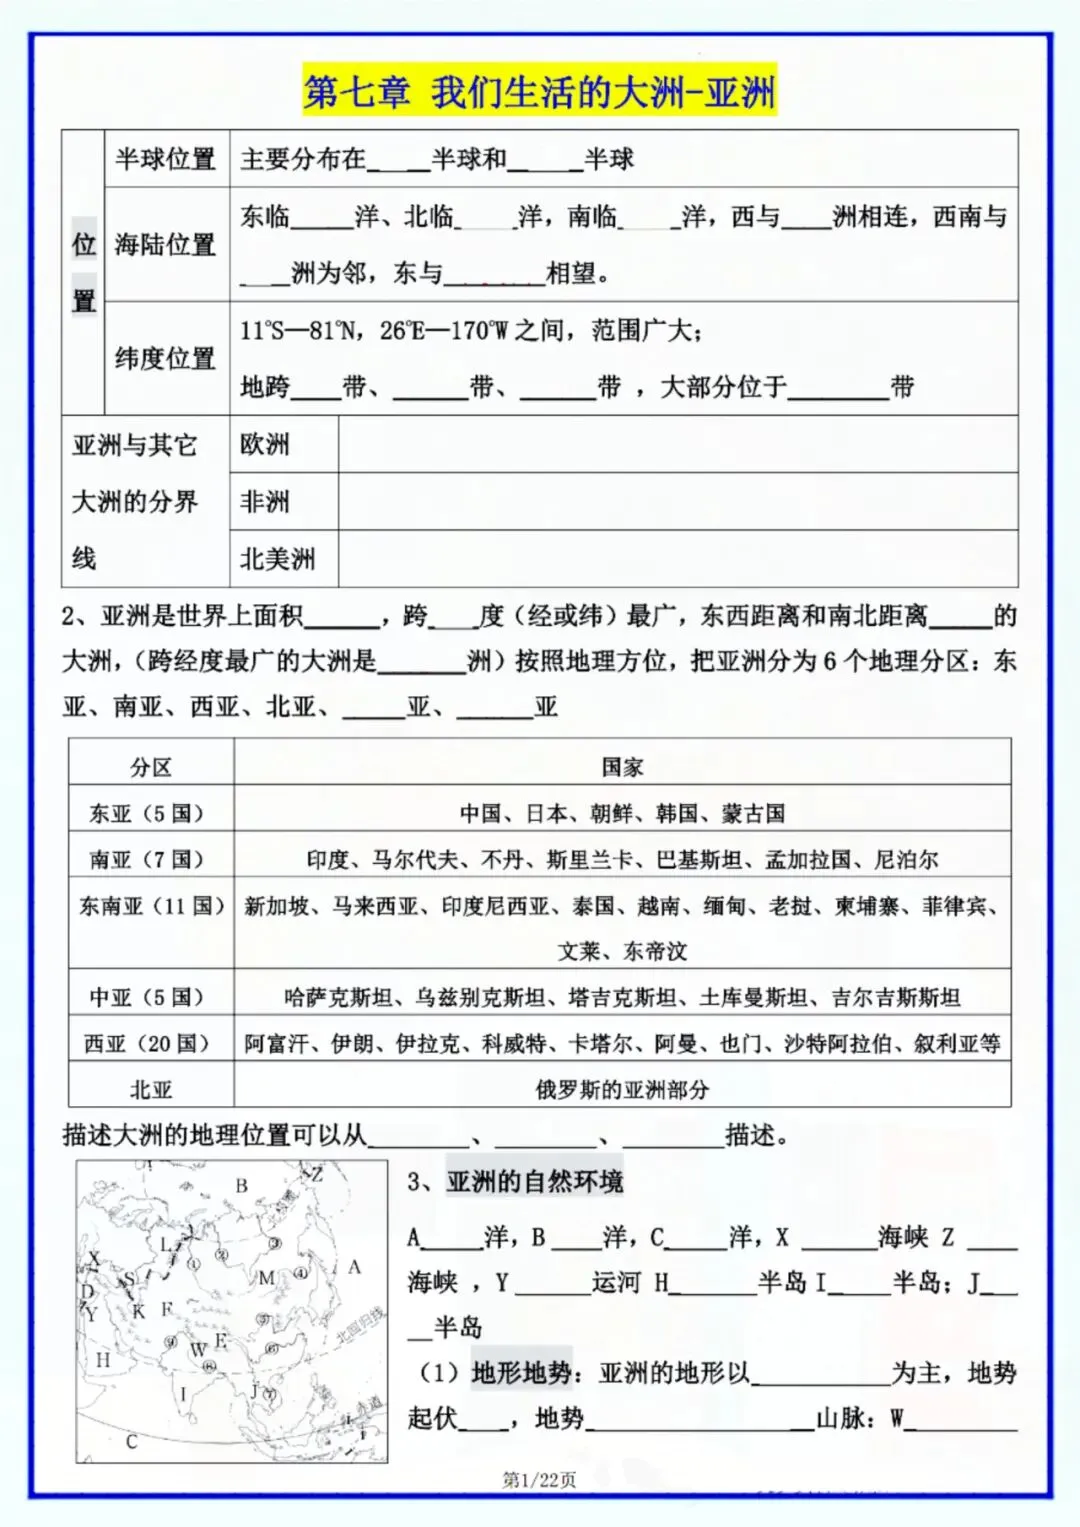 第七章 我们生活的大洲-亚洲
位置
半球位置 主要分布在_____半球和______半球
海陆位置 东临_____洋、北临_____洋，南临_____洋，西与____洲相连，西南与
____洲为邻，东与________相望。
纬度位置 11°S—81°N，26°E—170°W之间，范围广大；
地跨____带、______带、______带 ，大部分位于________带
亚洲与其它
大洲的分界
线
欧洲
非洲
北美洲
2、亚洲是世界上面积______，跨____度（经或纬）最广，东西距离和南北距离_____的
大洲，（跨经度最广的大洲是_______洲）按照地理方位，把亚洲分为6个地理分区：东
亚、南亚、西亚、北亚、_____亚、______亚
分区 国家
东亚（5国） 中国、日本、朝鲜、韩国、蒙古国
南亚（7国） 印度、马尔代夫、不丹、斯里兰卡、巴基斯坦、孟加拉国、尼泊尔
东南亚（11国） 新加坡、马来西亚、印度尼西亚、泰国、越南、缅甸、老挝、柬埔寨、菲律宾、
文莱、东帝汶
中亚（5国） 哈萨克斯坦、乌兹别克斯坦、塔吉克斯坦、土库曼斯坦、吉尔吉斯斯坦
西亚（20国） 阿富汗、伊朗、伊拉克、科威特、卡塔尔、阿曼、也门、沙特阿拉伯、叙利亚等
北亚 俄罗斯的亚洲部分
描述大洲的地理位置可以从________、________、________描述。
B
Z
L
②
③
①
X
S
M
④
A
D
Y
K
F
⑤
北回归线
⑨
W
E
⑥
⑧
H
I
J
⑦
赤道
C
3、亚洲的自然环境
A_____洋，B____洋，C_____洋，X ______海峡 Z ____
海峡 ，Y ______运河 H_______半岛 I_____半岛；J___
__半岛
（1）地形地势：亚洲的地形以___________为主，地势
起伏____，地势__________________山脉：W_________
第1/22页